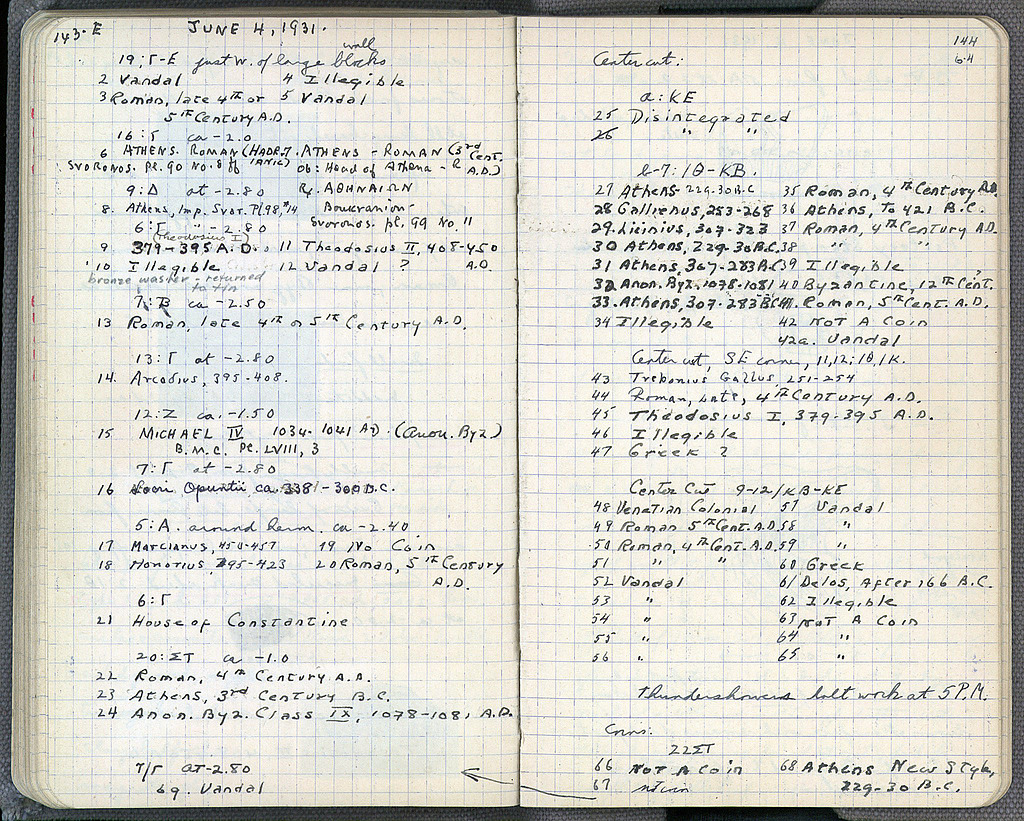 143·E JUNE 4, 1931.
19:Γ-E just W. of large wall blocks
2 Vandal 4 Illegible
3 Roman, late 4th or 5 Vandal
5th Century A.D.
16:Γ ca -2.0
6 ATHENS. ROMAN (HADRIANIC) 7. ATHENS - ROMAN (3rd Cent. A.D.)
SVORONOS. Pl. 90 No. 8 ff Ob: Head of Athena - R
9:Δ at -2.80 Rx. ΑΘΗΝΑΙΩΝ
8. Athens, Imp. Svor. Pl 98, #14 Boukranion-
6:Γ " -2.80 Svoronos. pl. 99 No. 11
(Theodosius I)
9 379-395 A.D. 11 Theodosius II, 408-450 A.D.
10 Illegible 12 Vandal ?
bronze washer - returned
to tin
7:B ca -2.50
13 Roman, late 4th or 5th Century A.D.
13:Γ at -2.80
14. Arcadius, 395-408.
12:Z ca. -1.50
15 MICHAEL IV 1034-1041 AD. (Anon. Byz)
B.M.C. Pl. LVIII, 3
7:Γ at -2.80
16 Locri Opuntii ca. 338-300 B.C.
5:A. around herm. ca -2.40
17 Marcianus, 450-457 19 No Coin
18 Honorius, 395-423 20 Roman, 5th Century
A.D.
6:Γ
21 House of Constantine
20:ΣΤ ca -1.0
22 Roman, 4th Century A.D.
23 Athens, 3rd Century B.C.
24 Anon. Byz. Class IX, 1078-1081 A.D.
7/Γ at -2.80
69. Vandal
144
64
Center cut:
a: KE
25 Disintegrated
26 " "
6-7: ΙΘ-KB.
27 Athens 229-30 B.C 35 Roman, 4th Century A.D.
28 Gallienus, 253-268 36 Athens, To 421 B.C.
29. Licinius, 307-323 37 Roman, 4th Century A.D.
30 Athens, 229-30 B.C. 38 " "
31 Athens, 307-283 B.C 39 Illegible
32 Anon. Byz. 1078-1081 40 Byzantine, 12th Cent.
33. Athens, 307-283 B.C. 41 Roman, 5th Cent. A.D.
34 Illegible 42 NOT A Coin
42a. Vandal
Center cut, SE corner, 11,12: ΙΘ, ΙΚ.
43 Trebonius Gallus, 251-254
44 Roman, Late, 4th Century A.D.
45 Theodosius I, 379-395 A.D.
46 Illegible
47 Greek ?
Center Cut 9-12/KB-KE
48 Venetian Colonial 57 Vandal
49 Roman 5th Cent. A.D. 58 "
50 Roman, 4th Cent. A.D. 59 "
51 " " 60 Greek
52 Vandal 61 Delos, After 166 B.C.
53 " 62 Illegible
54 " 63 NOT A Coin
55 " 64 "
56 " 65 "
thundershowers halt work at 5 P.M.
Coins:
22ΣΤ
66 NOT A Coin 68 Athens New Style,
67 229-30 B.C.